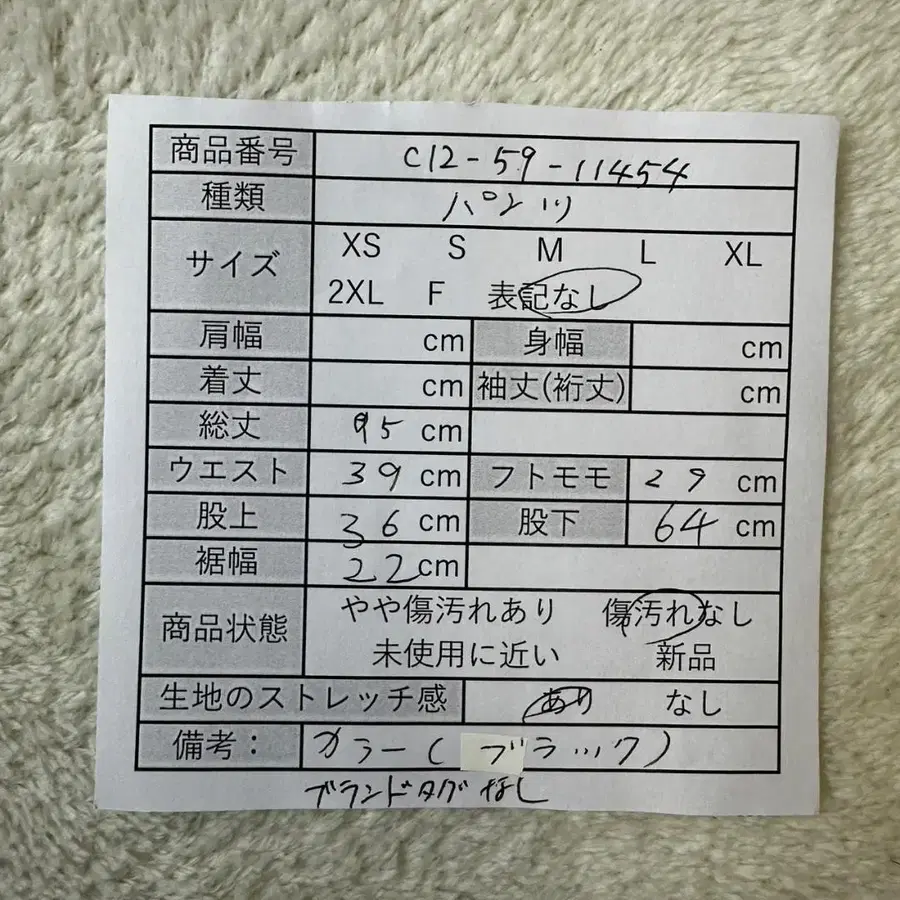 商品番号 C12-59-11454
種類 パンツ
サイズ XS S M L XL
2XL F 表記なし
肩幅 cm 身幅 cm
着丈 cm 袖丈(裄丈) cm
総丈 95 cm
ウエスト 39 cm フトモモ 29 cm
股上 36 cm 股下 64 cm
裾幅 22cm
商品状態 やや傷汚れあり 傷汚れなし
未使用に近い 新品
生地のストレッチ感 あり なし
備考： カラー(ブラック)
ブランドタグなし